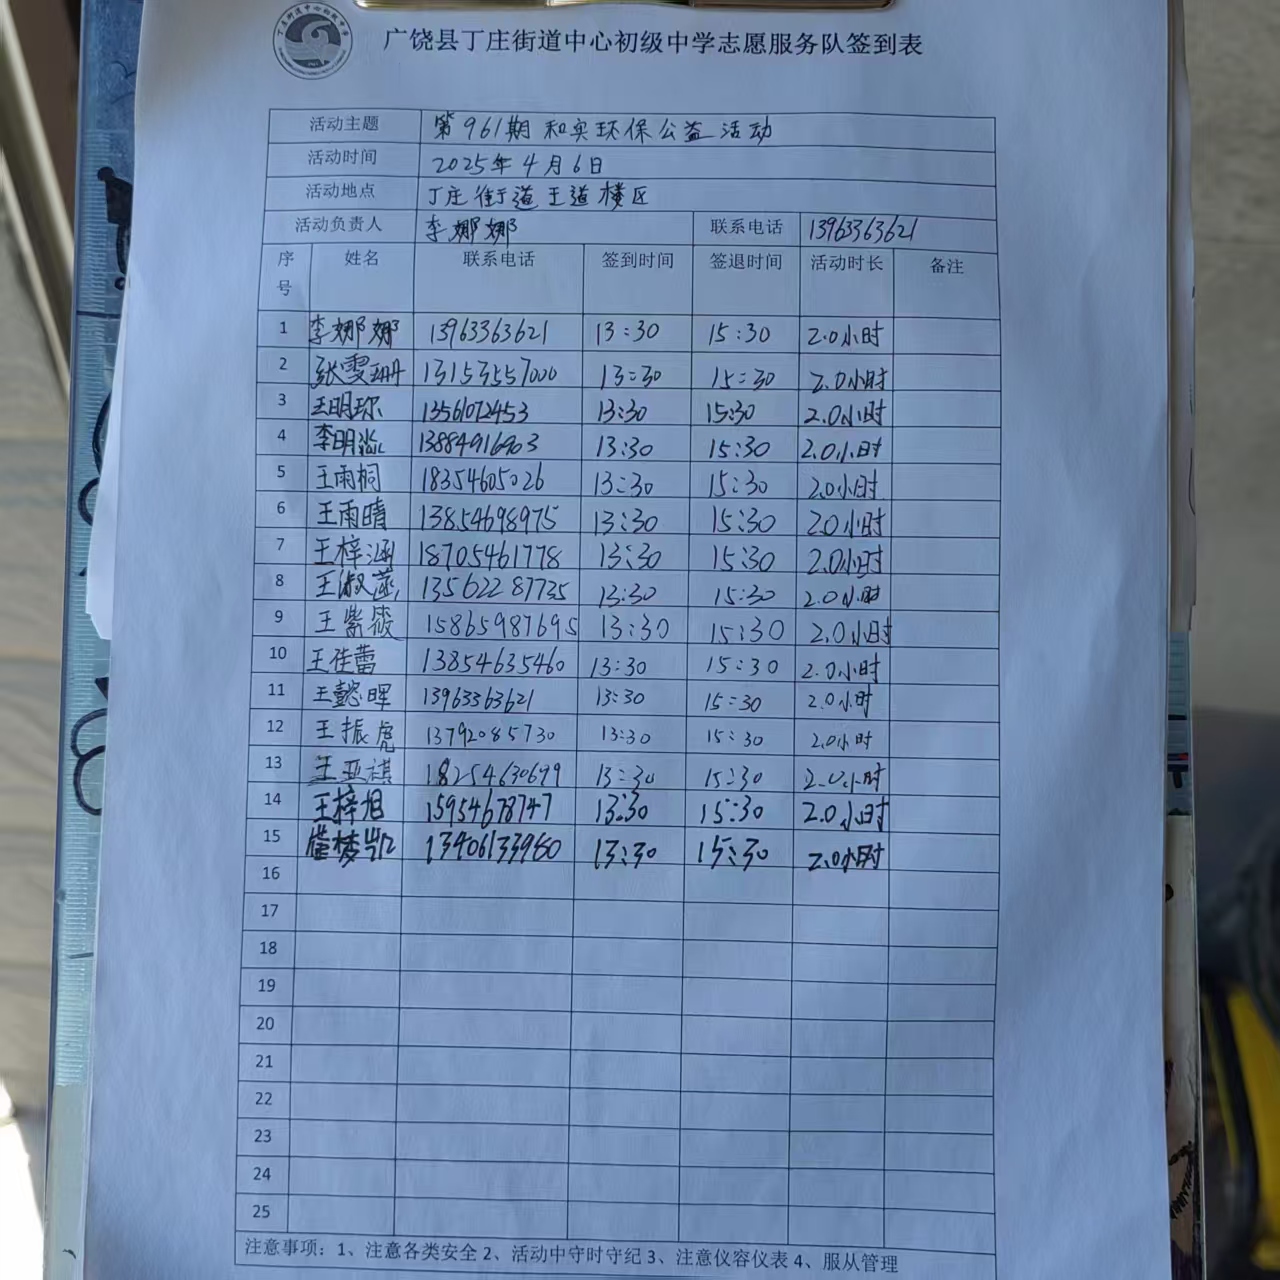 广饶县丁庄街道中心初级中学志愿服务队签到表
活动主题 第961期和实环保公益活动
活动时间 2025年4月6日
活动地点 丁庄街道王道楼区
活动负责人 李娜娜 联系电话 13963363621
序号 姓名 联系电话 签到时间 签退时间 活动时长 备注
1 李娜娜 13963363621 13:30 15:30 2.0小时
2 张雯珊 13153557000 13:30 15:30 2.0小时
3 王明琮 13561072453 13:30 15:30 2.0小时
4 李明溢 13884916903 13:30 15:30 2.0小时
5 王雨桐 18354605026 13:30 15:30 2.0小时
6 王雨晴 13854698975 13:30 15:30 2.0小时
7 王梓涵 18705461778 13:30 15:30 2.0小时
8 王淑菡 13562287735 13:30 15:30 2.0小时
9 王紫薇 15865987695 13:30 15:30 2.0小时
10 王佳蕾 13854635460 13:30 15:30 2.0小时
11 王懿晖 13963363621 13:30 15:30 2.0小时
12 王振虎 13792085730 13:30 15:30 2.0小时
13 王亚祺 18254630699 13:30 15:30 2.0小时
14 王梓旭 15954678747 13:30 15:30 2.0小时
15 13406133960 13:30 15:30 2.0小时
16
17
18
19
20
21
22
23
24
25
注意事项：1、注意各类安全 2、活动中守时守纪 3、注意仪容仪表 4、服从管理